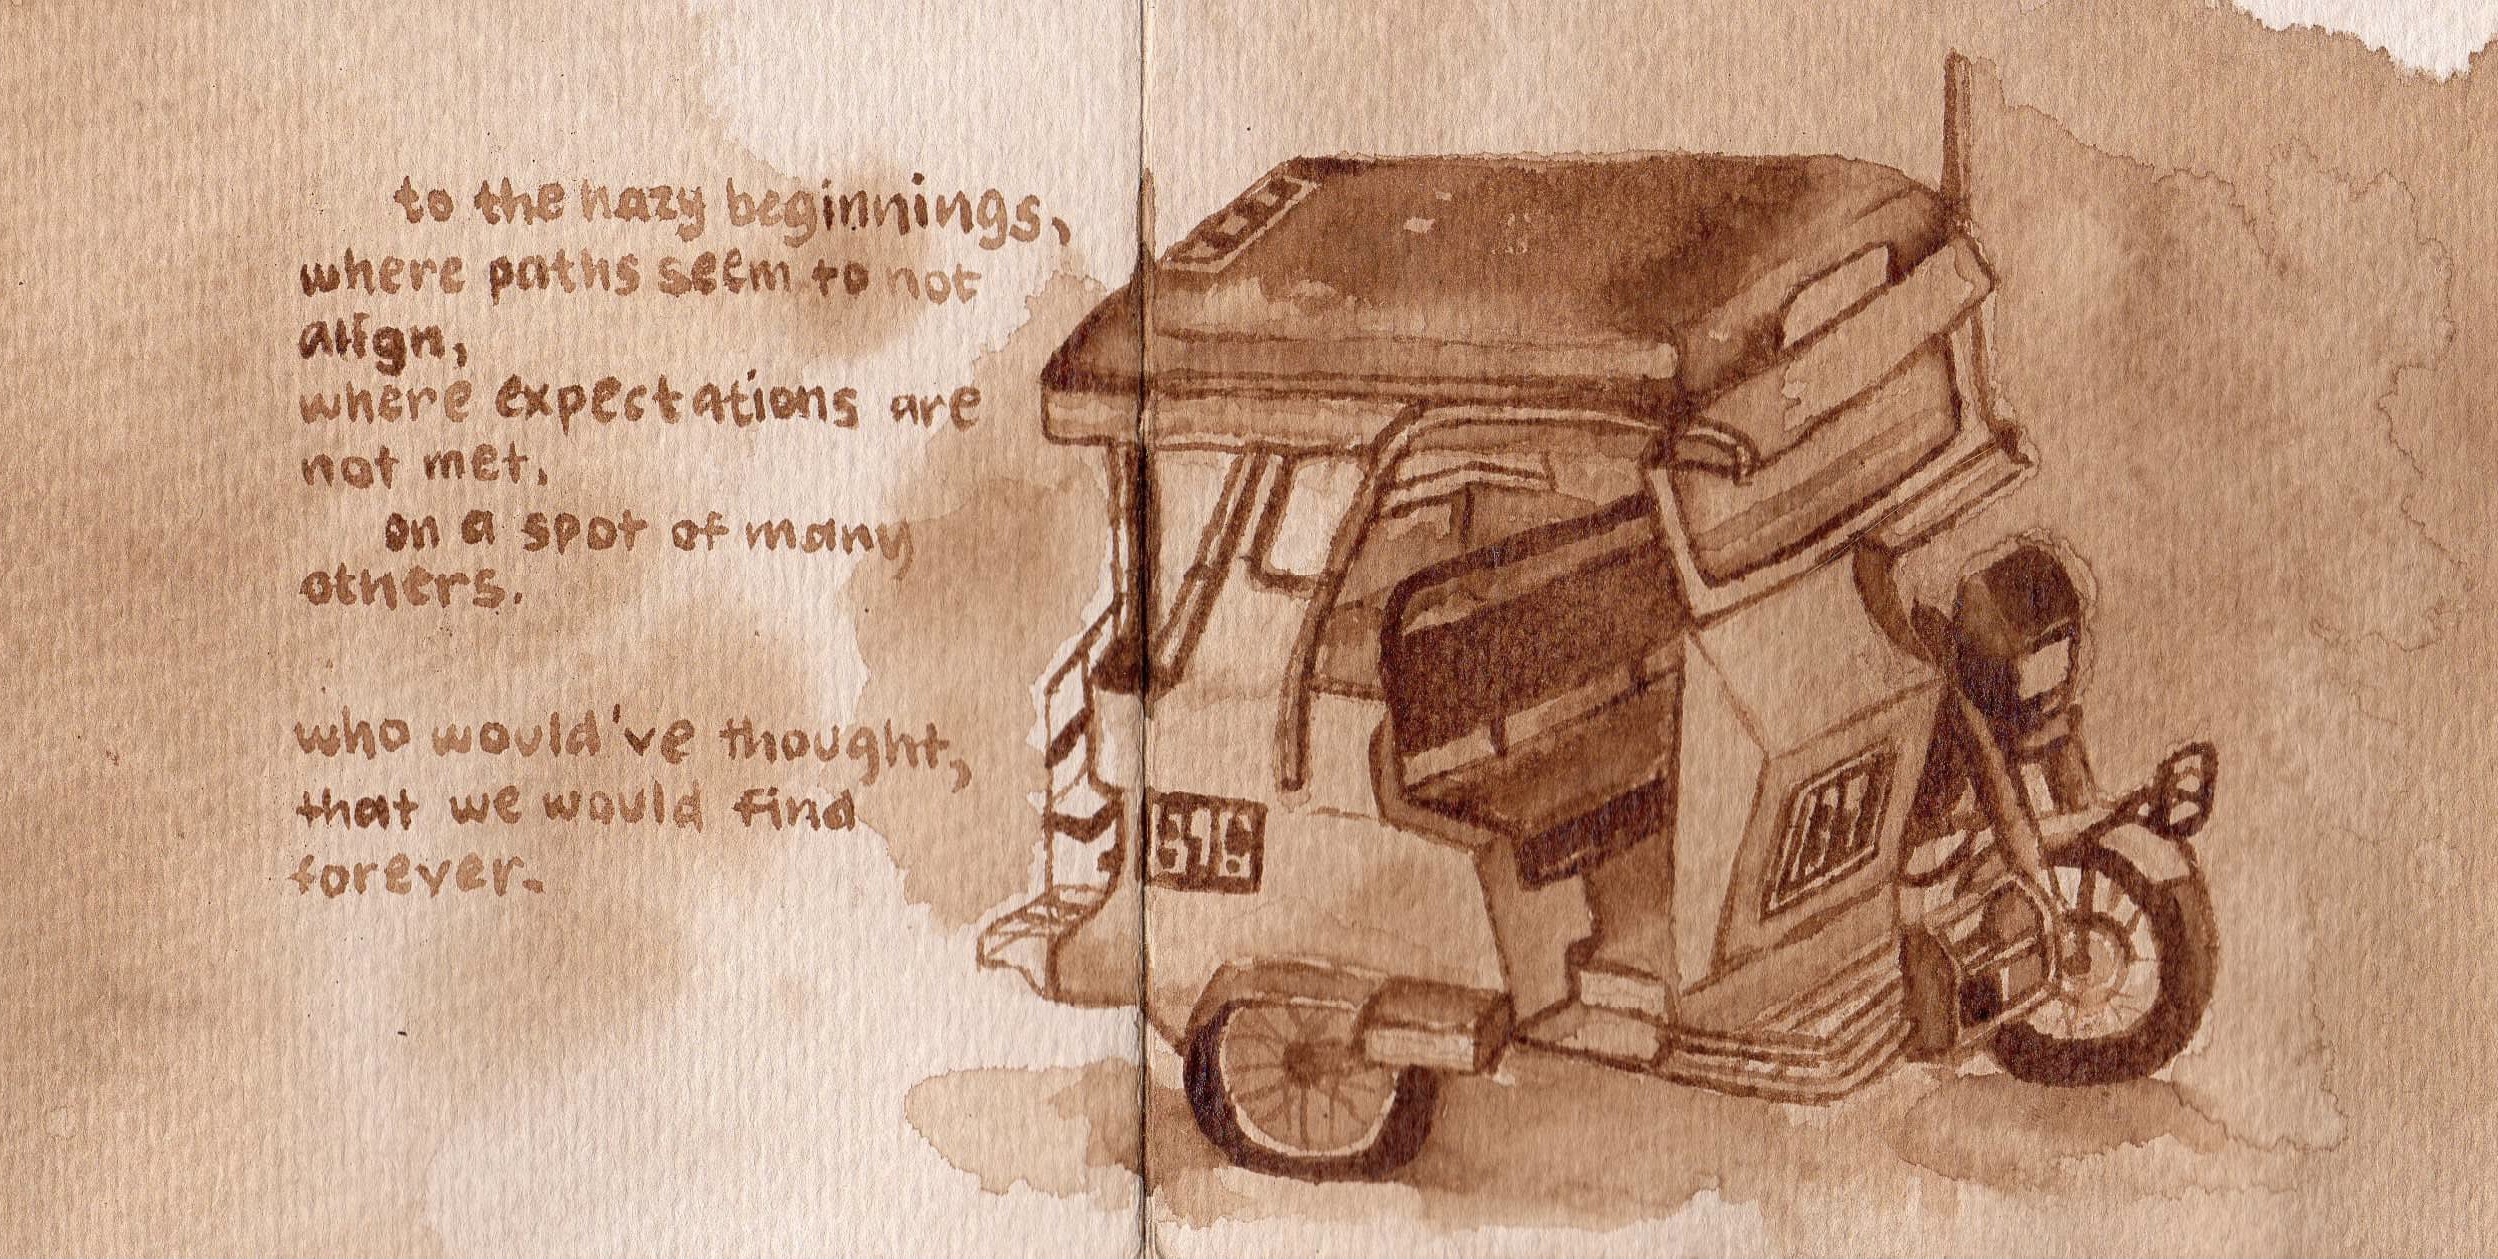 to the hazy beginnings,
where paths seem to not
align,
where expectations are
not met,
on a spot of many
others.
who would've thought,
that we would find
forever.